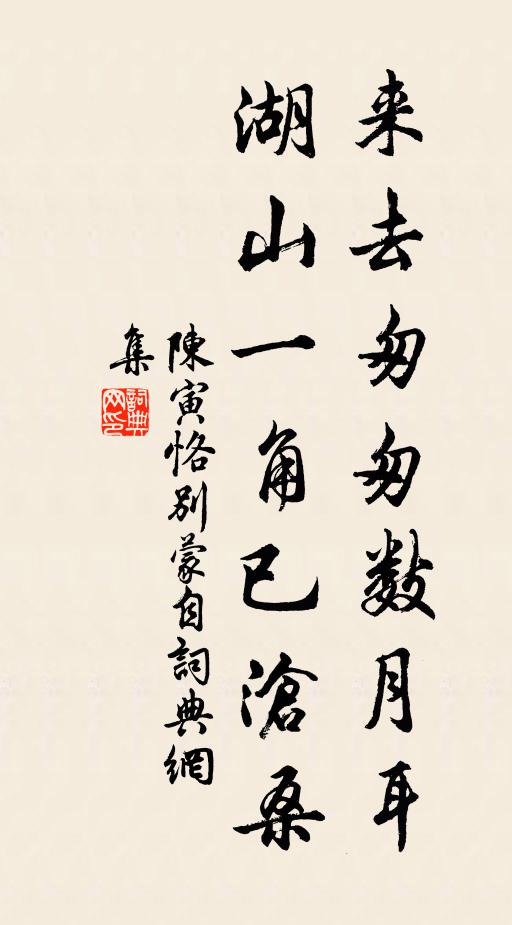 来去匆匆数月耳
湖山一角已滄桑
陳寅恪別蒙自詞典網
集
詞典
网印